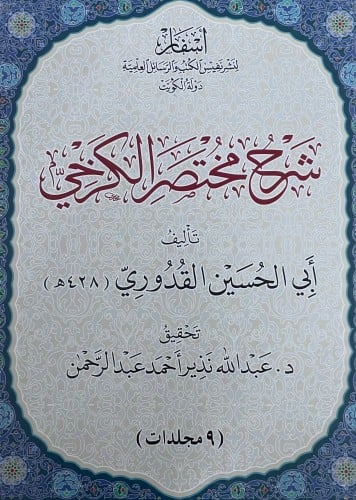 أسفار
لنشر نفيس الكتب والرسائل العلمية
دولة الكويت
شرح مختصر الكرخي
تأليف
أبي الحسين القدوري (٤٢٨ هـ)
تحقيق
د. عبد الله نذير أحمد عبد الرحمن
(٩ مجلدات)